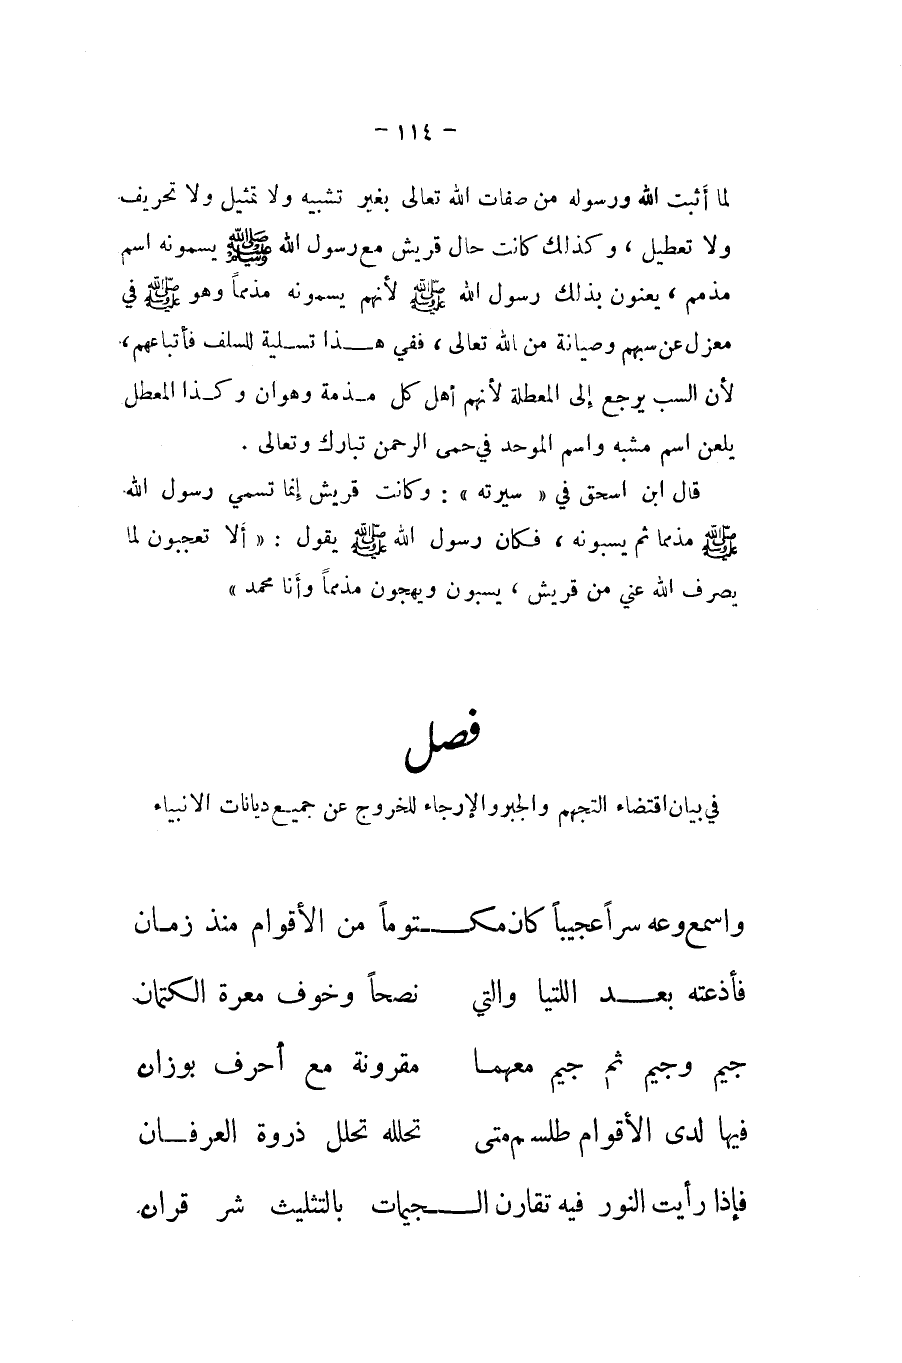 - ١١٤ -
لما أثبت الله ورسوله من صفات الله تعالى بغير تشبيه ولا تمثيل ولا تحريف
ولا تعطيل ، وكذلك كانت حال قريش مع رسول الله ﷺ يسمونه اسم
مذمم ، يعنون بذلك رسول الله ﷺ لأنهم يسمونه مذمماً وهو ﷺ في
معزل عن سبهم وصيانة من الله تعالى ، ففي هذا تسلية للسلف فأتباعهم ،
لأن السب يرجع إلى المعطلة لأنهم أهل كل مذمة وهوان وكذا المعطل
يلعن اسم مشبه واسم الموحد في حمى الرحمن تبارك وتعالى .
قال ابن اسحق في « سيرته » : وكانت قريش إنما تسمي رسول الله
ﷺ مذمما ثم يسبونه ، فكان رسول الله ﷺ يقول : « ألا تعجبون لما
يصرف الله عني من قريش ، يسبون ويهجون مذمماً وأنا محمد »
فصل
في بيان اقتضاء التجهم والجبر والإرجاء للخروج عن جميع ديانات الانبياء
واسمع وعه سراً عجيباً كان مكـتوماً من الأقوام منذ زمان
فأذعته بعد اللتيا والتي نصحاً وخوف معرة الكتمان
جيم وجيم ثم جيم معهما مقرونة مع أحرف بوزان
فيها لدى الأقوام طلسم متى تحلله تحلل ذروة العرفان
فإذا رأيت النور فيه تقارن الـجيمات بالتثليث شر قران